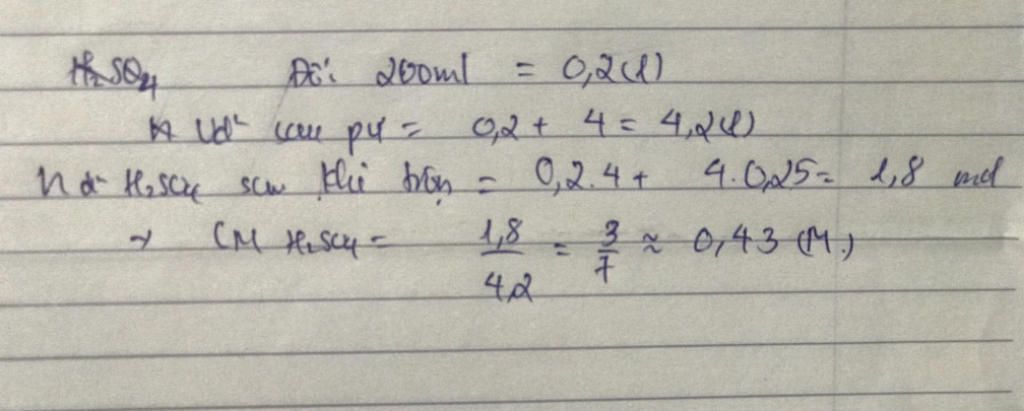 H₂SO₄ Đổi 200ml = 0,2(l)
Vd² sau pứ = 0,2 + 4 = 4,2(l)
n d² H₂SO₄ sau khi trộn = 0,2.4 + 4.0,25 = 1,8 mol
→ CM H₂SO₄ = 1,8/4,2 = 3/7 ≈ 0,43 (M)